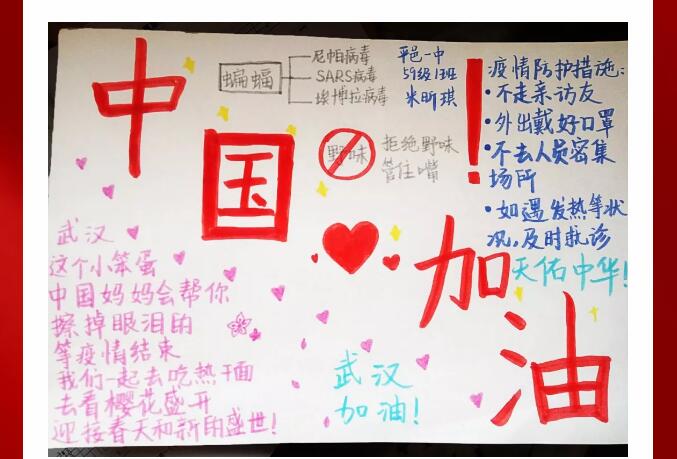 中国加油
蝙蝠
尼帕病毒
SARS病毒
埃博拉病毒
平邑一中
59级13班
米昕琪
野味
拒绝野味
管住嘴
!
疫情防护措施:
•不走亲访友
•外出戴好口罩
•不去人员密集
场所
•如遇发热等状
况,及时就诊
天佑中华!
武汉
这个小笨蛋
中国妈妈会帮你
擦掉眼泪的
等疫情结束
我们一起去吃热干面
去看樱花盛开
迎接春天和新的盛世!
武汉
加油!